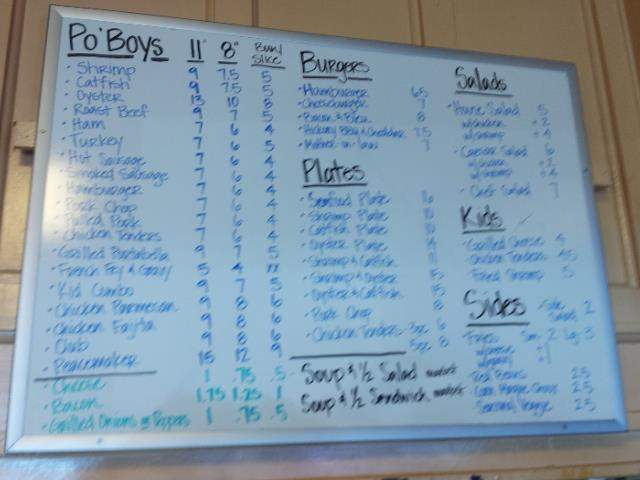 Po' Boys 11" 8" Bun/Slice
· Shrimp 9 7.5 5
· Catfish 9 7.5 5
· Oyster 13 10 8
· Roast Beef 9 7 5
· Ham 7 6 4
· Turkey 7 6 4
· Hot Sausage 7 6 4
· Smoked Sausage 7 6 4
· Hamburger 7 6 4
· Pork Chop 7 6 4
· Pulled Pork 7 6 4
· Chicken Tenders 7 6 4
· Grilled Portabella 9 7 5
· French Fry & Gravy 5 4
· Kid Combo 9 7 5
· Chicken Parmesan 9 8 6
· Chicken Fajita 9 8 6
· Club 9 8 6
· Peacemaker 15 12 9
· Cheese 1 .75 .5
· Bacon 1.75 1.25 1
· Grilled Onions or Peppers 1 .75 .5
Burgers
· Hamburger 6.5
· Cheeseburger 7
· Bacon & Bleu 8
· Hickory BBQ & Cheddar 7.5
· Mother-in-law 7
Plates
· Seafood Plate 16
· Shrimp Plate 10
· Catfish Plate 10
· Oyster Plate 14
· Shrimp & Catfish 11
· Shrimp & Oyster 15
· Oyster & Catfish 15
· Pork Chop 8
· Chicken Tenders 3pc 6
5pc 8
Soup & 1/2 Salad market
Soup & 1/2 Sandwich market
Salads
· House Salad 5
w/chicken +2
w/shrimp +4
· Caesar Salad 6
w/chicken +2
w/shrimp +4
· Chef Salad 7
Kids
· Grilled Cheese 4
· Chicken Tenders 4.5
· Fried Shrimp 5
Sides
Side Salad 2
· Fries Sm. 2 Lg. 3
w/cheese
w/gravy +1
· Red Beans 2.5
· Corn 2.5
· Seasonal Veggie 2.5